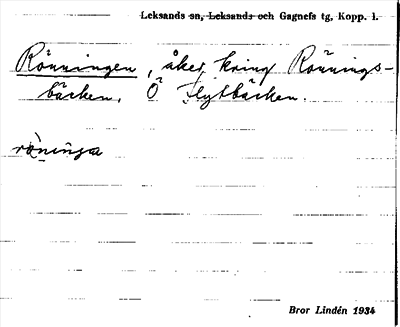 Leksands sn, Leksands och Gagnefs tg, Kopp. l.
Rönningen, åker kring Rönnings-
bäcken. Ö Flytbäcken.
röninga
Bror Lindén 1934